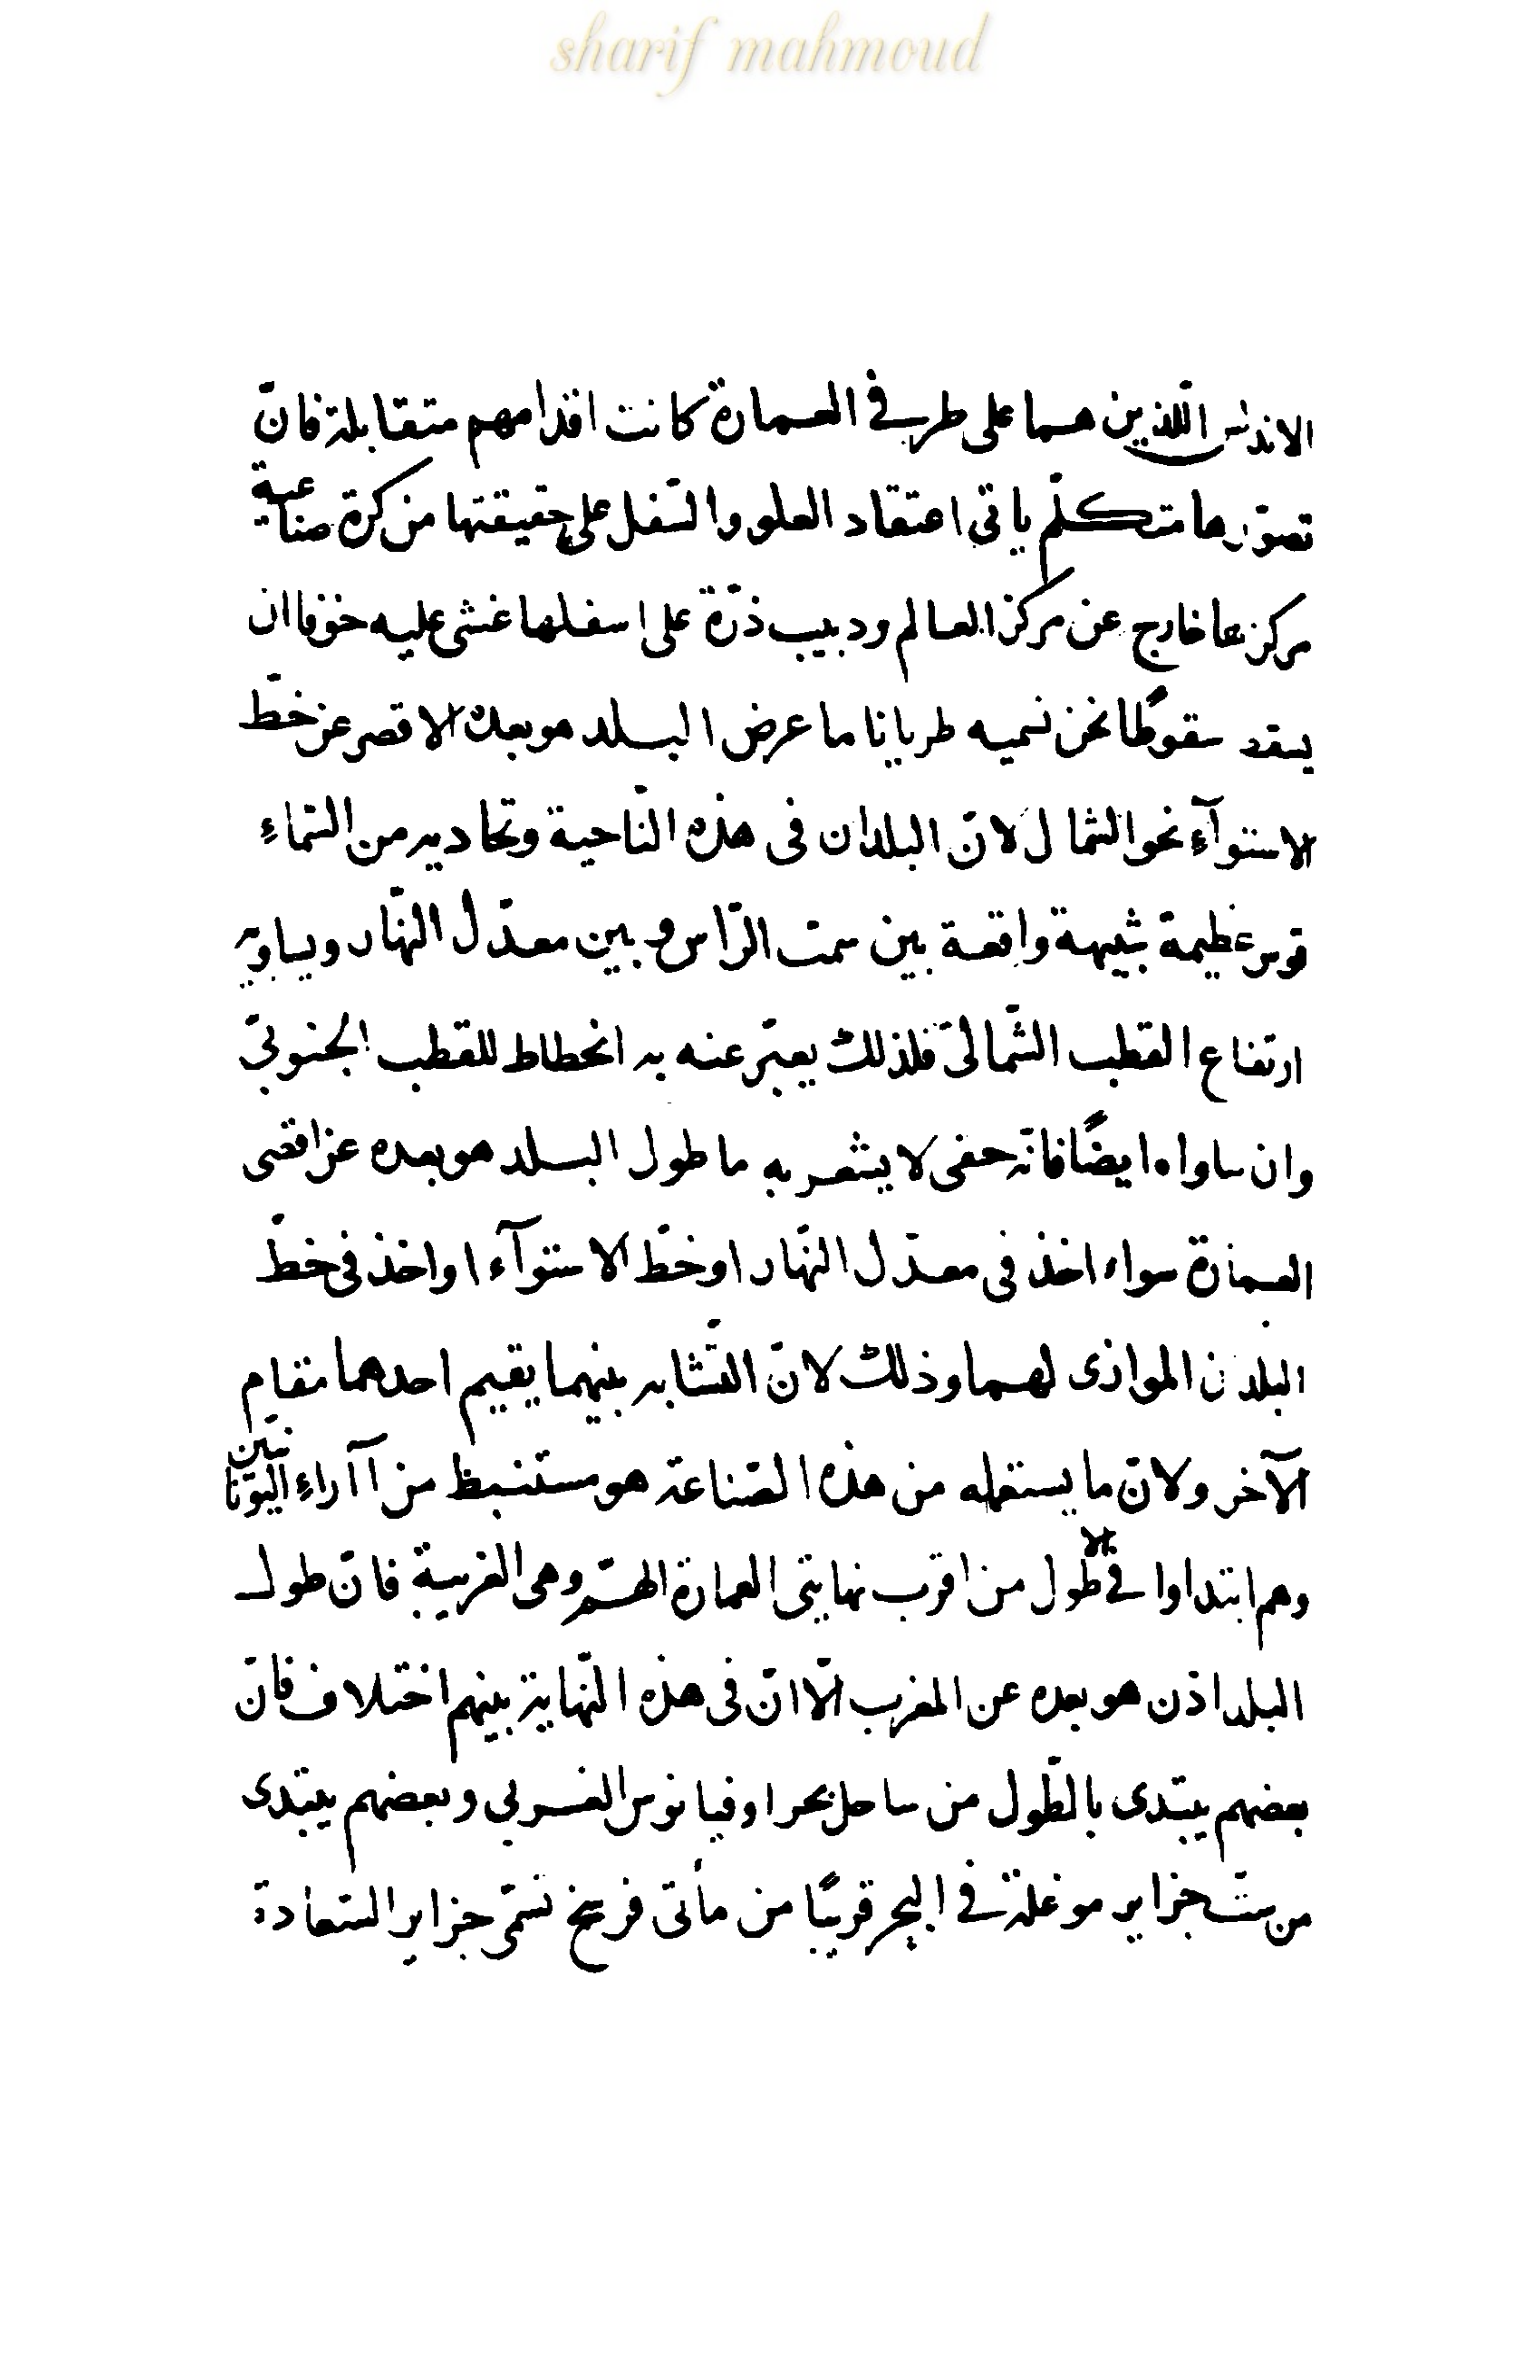 sharif mahmoud
الاندلس اللّذين هما على طرفي العمارة كانت اقدامهم متقابلة فانّ
تصوّرها متكلّم باقي اعتقاد العلو والسّفل على حقيقتها من كرة صناعية
مركزها خارج عن مركز العالم ودبيب ذرّة على اسفلها غشى عليه خوفا ان
سقوطًا نحن نسميه طربانا ما عرض البلد هو بعده الاقصر عن خطّ
الاستوآءِ نحو الشمال لانّ البلدان فى هذه النّاحية وتحاذيه من السّماءِ
قوس عظيمة شبيهة واقعة بين سمت الرّاس وبين معدّل النّهار ويساويه
ارتفاع القطب الشّمالىّ فلذلك يعبّر عنه به انحطاط للقطب الجنوبىّ
وان ساواه ايضًا فانّه خفى لا يشعر به ما طول البلد هو بعده عن اقصى
العمارة سواء اخذ فى معدّل النّهار او خطّ الاستوآء او اخذ فى خطّ
البلدان الموازى لهما وذلك لانّ التّشابه بينهما يقيم احدهما مقام
الآخر ولانّ ما يستعمله من هذه الصّناعة هو مستنبط من آراءِ اليونانيّين
وهم ابتداوا فى الطول من اقرب نهايتى العمارة اليهم وهى الغربية فانّ طول
البلد اذن هو بعده عن المغرب الّا انّ فى هذه النّهاية بينهم اختلاف فانّ
بعضهم يبتدى بالطّول من ساحل بحر اوقيانوس الغربى وبعضهم يبتدى
من ستّ جزاير موغلة فى البحر قريبًا من مأتى فرسخ تسمّى جزاير السّعادة